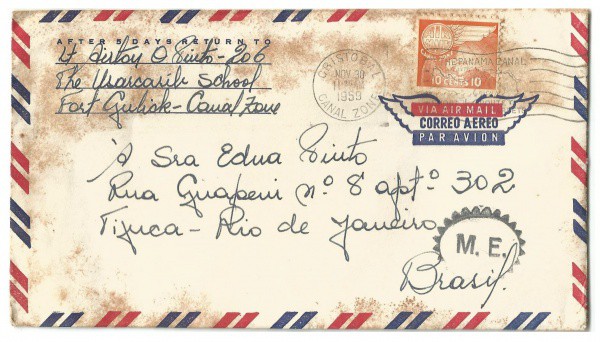 AFTER 5 DAYS RETURN TO
Lt. Airton O Pinto - 206
The Usarcarib School
Fort Gulick - Canal Zone
CRISTOBAL
NOV 30
1958
CANAL ZONE
THE PANAMA CANAL
10 CENTS 10
VIA AIR MAIL
CORREO AEREO
PAR AVION
à Sra Edna Pinto
Rua Guapeni nº 8 aptº 302
Tijuca - Rio de Janeiro
M. E.
Brasil.